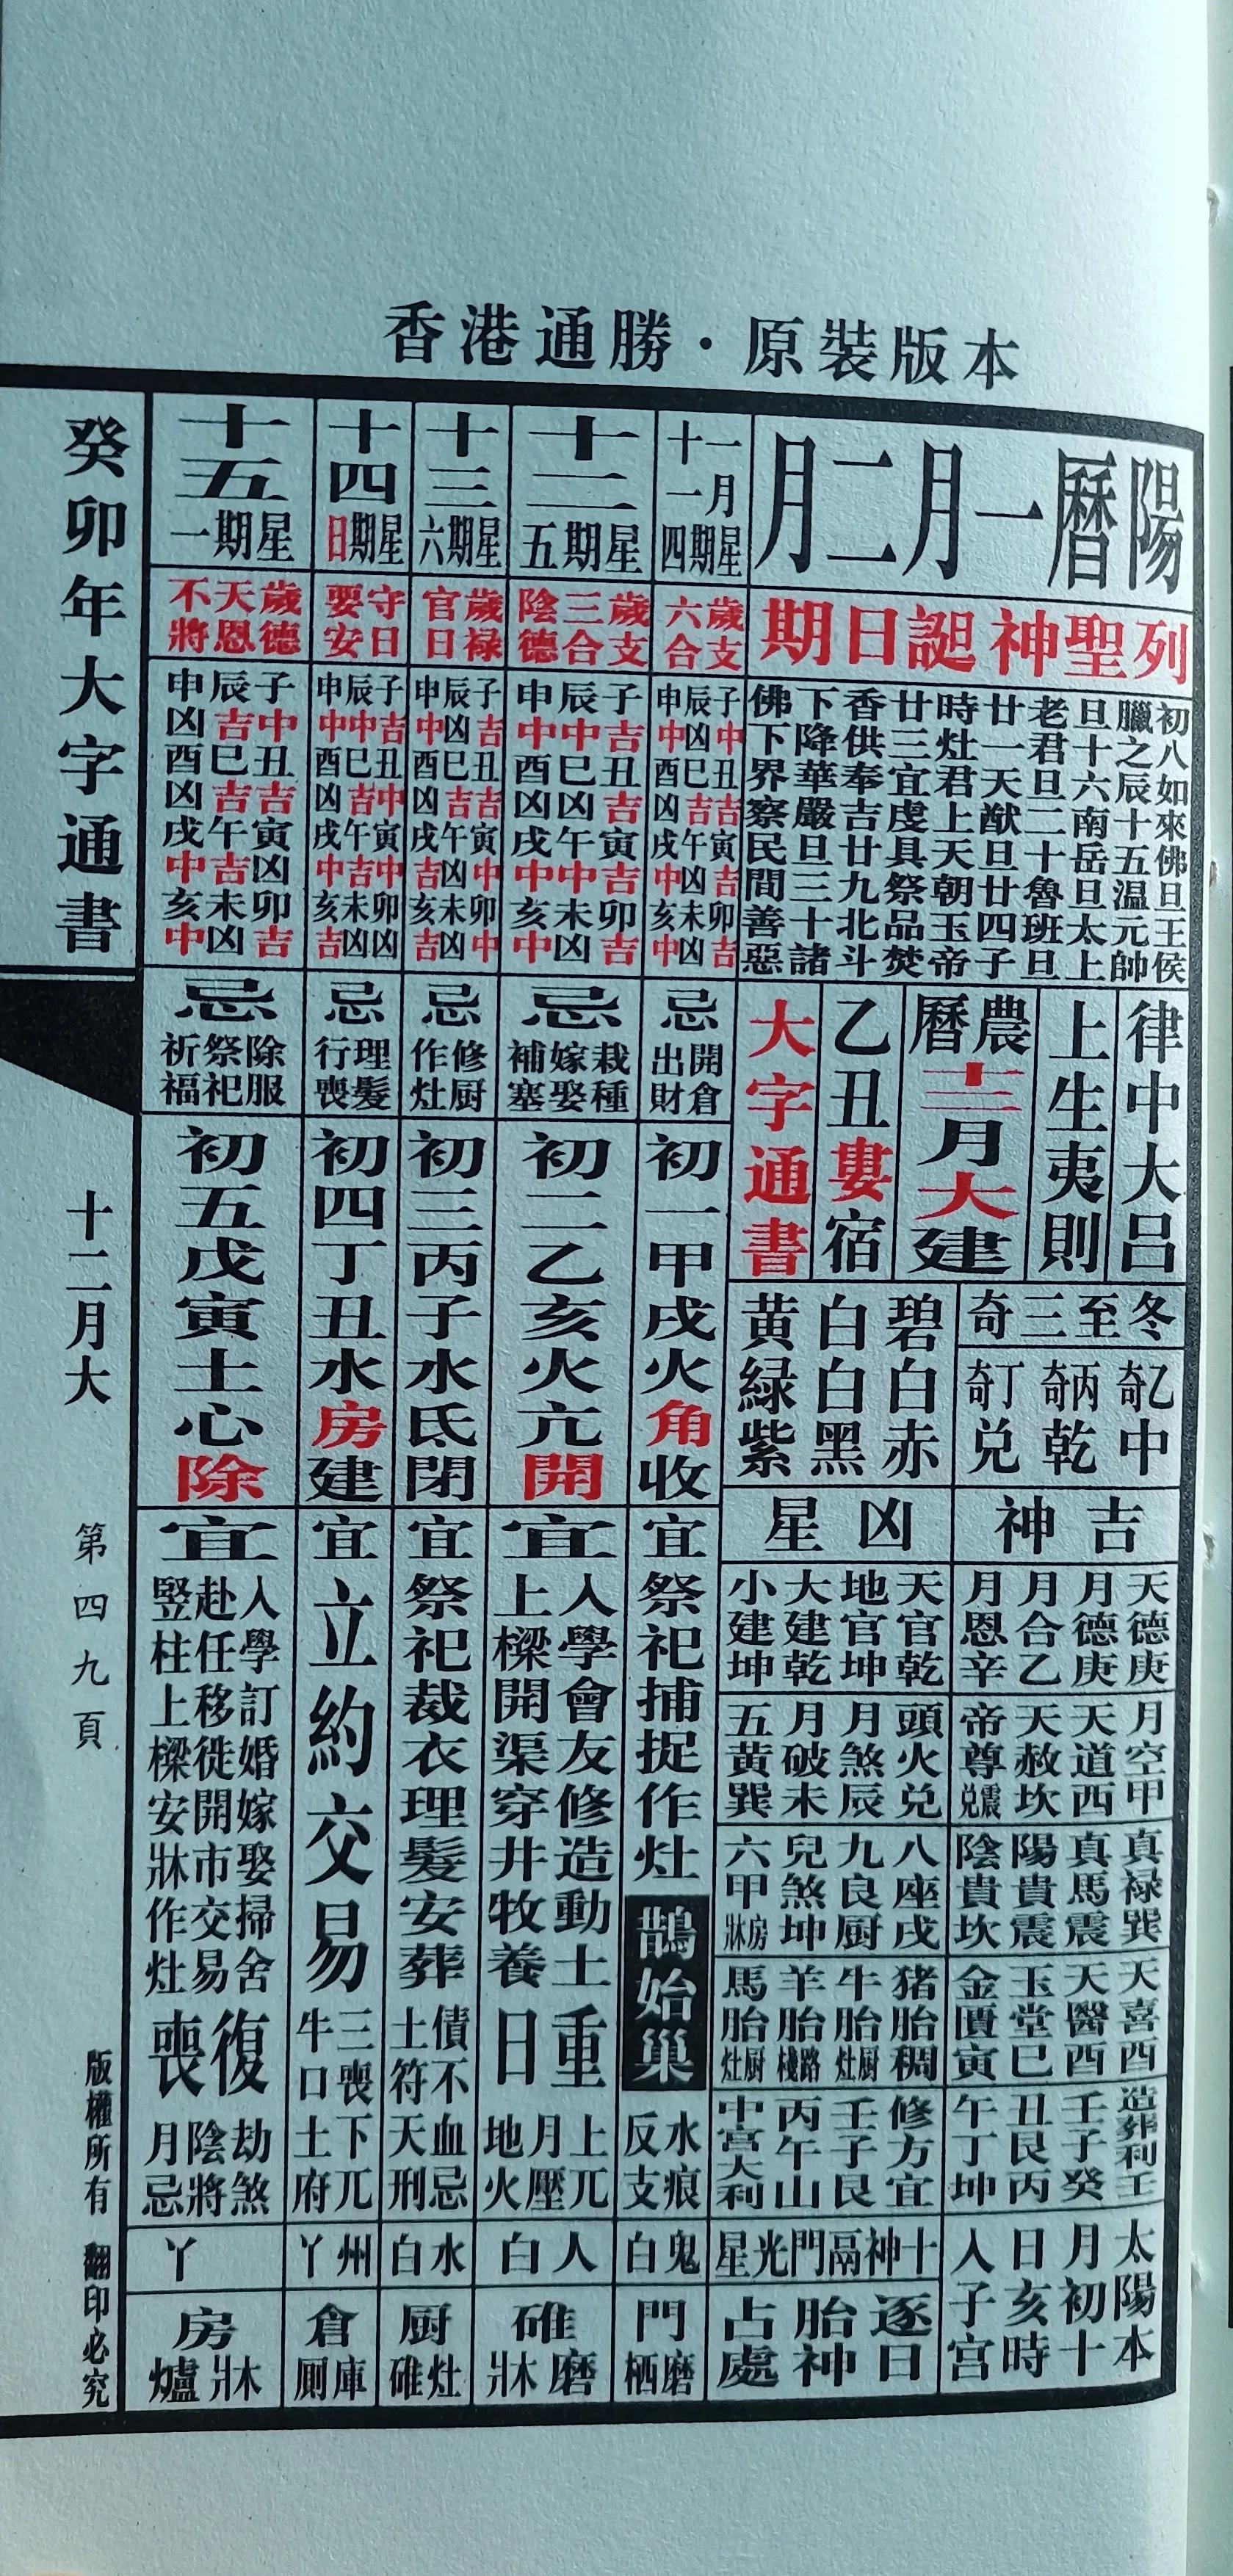 香港通勝·原裝版本
陽曆一月二月
列聖神誕日期
初八如來佛旦王侯
臘之辰十五温元帥
旦十六南岳旦太上
老君旦二十魯班旦
廿一天猷旦廿四子
時灶君上天朝玉帝
廿三宜虔具祭品焚
香供奉吉廿九北斗
下降華嚴旦三十諸
佛下界察民間善惡
律中大呂
上生夷則
農曆
十二月大建
乙丑婁宿
大字通書
冬至三奇
乙奇中
丙奇乾
丁奇兑
碧白赤
白白黑
黄緑紫
吉神
天德庚
月德庚
月合乙
月恩辛
月空甲
天道西
天赦坎
帝尊震兑
真禄巽
真馬震
陽貴震
陰貴坎
天喜酉
天醫酉
玉堂巳
金匱寅
造葬利壬
壬子癸
丑艮丙
午丁坤
太陽本
月初十
日亥時
入子宮
凶星
天官乾
地官坤
大建乾
小建坤
頭火兑
月煞辰
月破未
五黄巽
八座戌
九良厨
兒煞坤
六甲房牀
猪胎稠
牛胎厨灶
羊胎路棧
馬胎厨灶
修方宜
壬子艮
丙午山
中宮大利
十神鬲門光星
逐日
胎神
占處
十一
一月
星期四
歲支
六合
子中丑吉寅吉卯吉
辰凶巳吉午凶未凶
申中酉凶戌中亥中
忌
開倉
出財
初一甲戌火角收
宜
祭祀捕捉作灶
鵲始巢
水痕
反支
鬼白
門
磨栖
十二
星期五
歲支
三合
陰德
子吉丑吉寅吉卯吉
辰中巳凶午中未凶
申中酉凶戌中亥中
忌
栽種
嫁娶
補塞
初二乙亥火亢開
宜
入學會友修造動土
上樑開渠穿井牧養
重日
上兀
月壓
地火
人白
碓
磨牀
十三
星期六
歲禄
官日
子吉丑吉寅中卯中
辰凶巳吉午凶未凶
申中酉凶戌吉亥吉
忌
修厨
作灶
初三丙子水氐閉
宜
祭祀裁衣理髮安葬
債不
土符
血忌
天刑
水白
厨
灶碓
十四
星期日
守日
要安
子吉丑中寅中卯凶
辰中巳吉午吉未凶
申中酉凶戌中亥吉
忌
理髮
行喪
初四丁丑水房建
宜
立約交易
三喪
牛口
下兀
土府
州丫
倉
庫厠
十五
星期一
歲德
天恩
不將
子中丑吉寅凶卯吉
辰吉巳吉午吉未凶
申凶酉凶戌中亥中
忌
除服
祭祀
祈福
初五戊寅土心除
宜
入學訂婚嫁娶掃舍
赴任移徙開市交易
竪柱上樑安牀作灶
復喪
劫煞
陰將
月忌
丫
房
牀爐
癸卯年大字通書
十二月大
第四九頁
版權所有 翻印必究